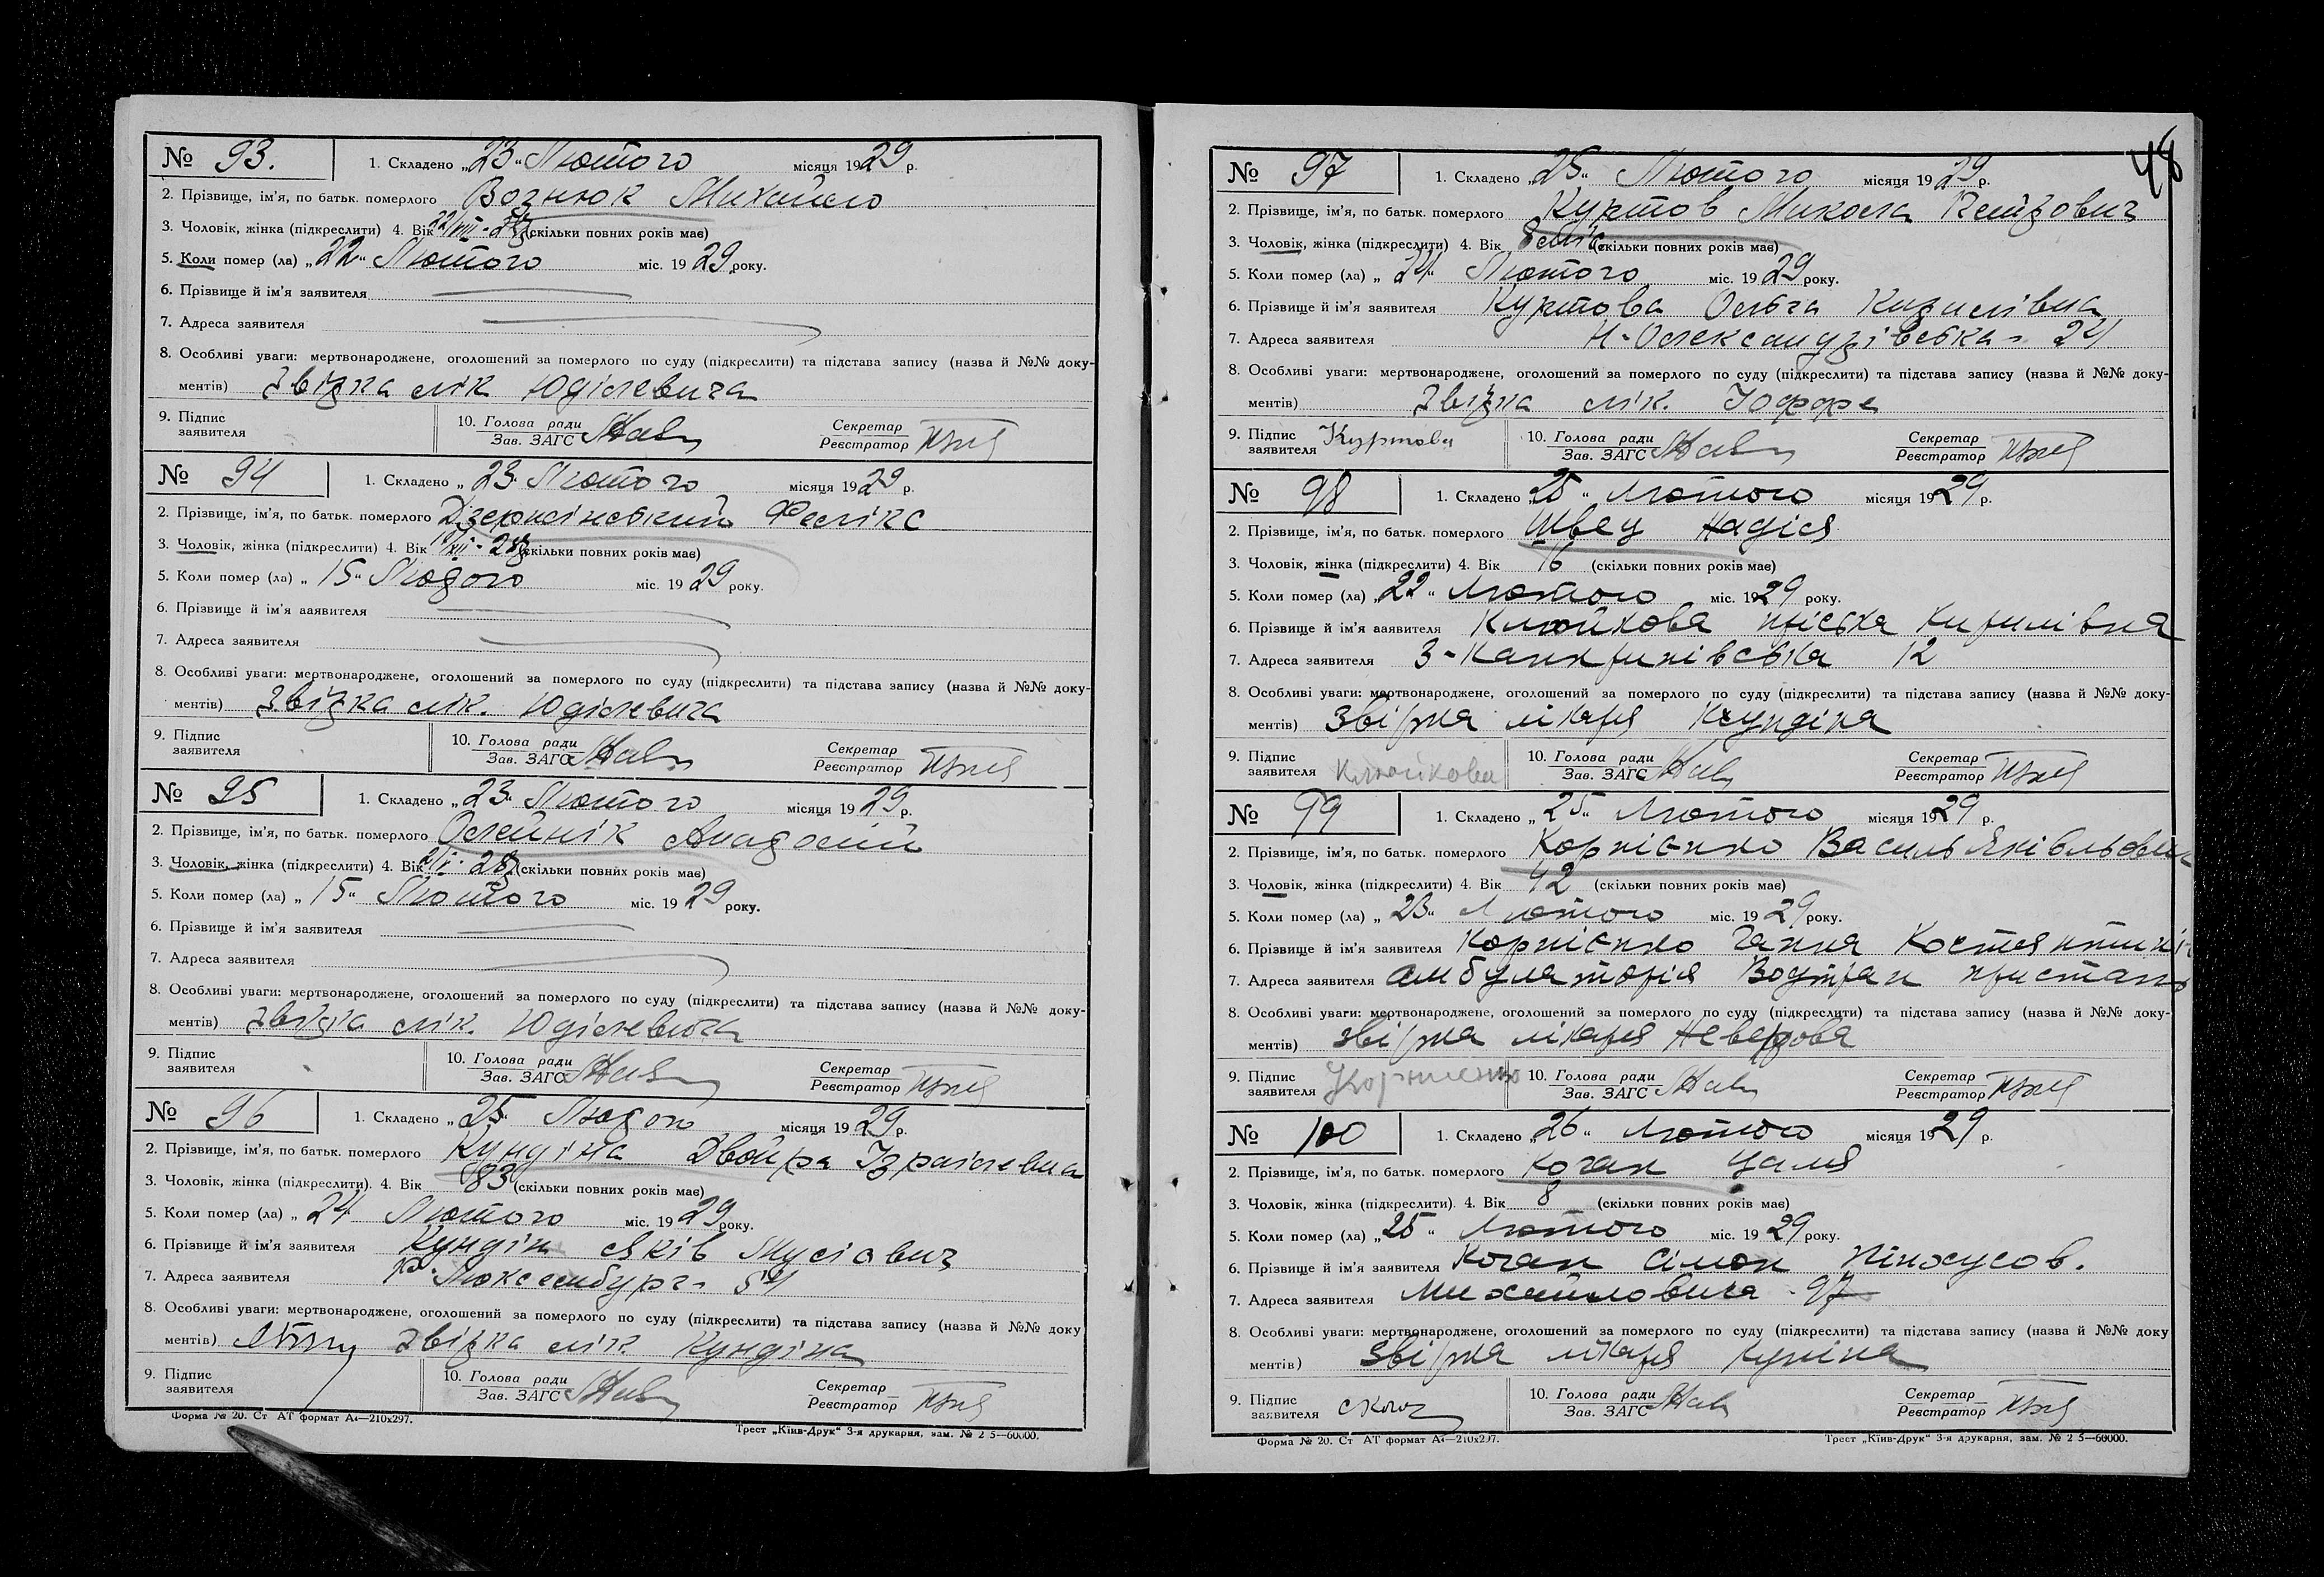 № 93. 1. Складено „23“ Лютого місяця 1929 р.
2. Прізвище, ім'я, по батьк. померлого Вознюк Михайло
3. Чоловік, жінка (підкреслити) 4. Вік (скільки повних років має)
5. Коли помер (ла) „22“ Лютого міс. 1929 року.
6. Прізвище й ім'я заявителя
7. Адреса заявителя
8. Особливі уваги: мертвонароджене, оголошений за померлого по суду (підкреслити) та підстава запису (назва й №№ доку-
ментів) Звірка лік Юділевича
9. Підпис заявителя 10. Голова ради Зав. ЗАГС Секретар Реєстратор
№ 94 1. Складено „23“ Лютого місяця 1929 р.
2. Прізвище, ім'я, по батьк. померлого Дзержінський Фелікс
3. Чоловік, жінка (підкреслити) 4. Вік (скільки повних років має)
5. Коли помер (ла) „15“ Лютого міс. 1929 року.
6. Прізвище й ім'я заявителя
7. Адреса заявителя
8. Особливі уваги: мертвонароджене, оголошений за померлого по суду (підкреслити) та підстава запису (назва й №№ доку-
ментів) Звірка лік. Юділевича
9. Підпис заявителя 10. Голова ради Зав. ЗАГС Секретар Реєстратор
№ 95 1. Складено „23“ Лютого місяця 1929 р.
2. Прізвище, ім'я, по батьк. померлого Олейнік
3. Чоловік, жінка (підкреслити) 4. Вік (скільки повних років має)
5. Коли помер (ла) „15“ Лютого міс. 1929 року.
6. Прізвище й ім'я заявителя
7. Адреса заявителя
8. Особливі уваги: мертвонароджене, оголошений за померлого по суду (підкреслити) та підстава запису (назва й №№ доку-
ментів) Звірка лік. Юділевича
9. Підпис заявителя 10. Голова ради Зав. ЗАГС Секретар Реєстратор
№ 96 1. Складено „25“ Лютого місяця 1929 р.
2. Прізвище, ім'я, по батьк. померлого Кундіна Двойра Ізраілевна
3. Чоловік, жінка (підкреслити). 4. Вік 83 (скільки повних років має)
5. Коли помер (ла) „24“ Лютого міс. 1929 року.
6. Прізвище й ім'я заявителя Кундін Яків Мусіович
7. Адреса заявителя Р. Люксембург 54
8. Особливі уваги: мертвонароджене, оголошений за померлого по суду (підкреслити) та підстава запису (назва й №№ доку
ментів) Звірка лік Кундіна
9. Підпис заявителя 10. Голова ради Зав. ЗАГС Секретар Реєстратор
Форма № 20. Ст АТ формат А4—210x297. Трест „Київ-Друк“ 3-я друкарня, зам. № 2 5—60000.
48
№ 97 1. Складено „25“ Лютого місяця 1929 р.
2. Прізвище, ім'я, по батьк. померлого Куртов Микола Петрович
3. Чоловік, жінка (підкреслити) 4. Вік 8 міс (скільки повних років має)
5. Коли помер (ла) „24“ Лютого міс. 1929 року.
6. Прізвище й ім'я заявителя Куртова Ольга Кирилівна
7. Адреса заявителя Н-Олександрівська 24
8. Особливі уваги: мертвонароджене, оголошений за померлого по суду (підкреслити) та підстава запису (назва й №№ доку-
ментів) Звірка лік. Іоффе
9. Підпис заявителя Куртова 10. Голова ради Зав. ЗАГС Секретар Реєстратор
№ 98 1. Складено „25“ Лютого місяця 1929 р.
2. Прізвище, ім'я, по батьк. померлого Швец Надія
3. Чоловік, жінка (підкреслити) 4. Вік 16 (скільки повних років має)
5. Коли помер (ла) „22“ Лютого міс. 1929 року.
6. Прізвище й ім'я заявителя Клюйкова Пріська Кирилівна
7. Адреса заявителя 12
8. Особливі уваги: мертвонароджене, оголошений за померлого по суду (підкреслити) та підстава запису (назва й №№ доку-
ментів) Звірка лікаря Кундіна
9. Підпис заявителя Клюйкова 10. Голова ради Зав. ЗАГС Секретар Реєстратор
№ 99 1. Складено „25“ Лютого місяця 1929 р.
2. Прізвище, ім'я, по батьк. померлого Корнієнко Василь
3. Чоловік, жінка (підкреслити) 4. Вік 42 (скільки повних років має)
5. Коли помер (ла) „23“ Лютого міс. 1929 року.
6. Прізвище й ім'я заявителя Корнієнко Ганна
7. Адреса заявителя амбулаторія Водтран пристань
8. Особливі уваги: мертвонароджене, оголошений за померлого по суду (підкреслити) та підстава запису (назва й №№ доку-
ментів) Звірка лікаря Неверова
9. Підпис заявителя 10. Голова ради Зав. ЗАГС Секретар Реєстратор
№ 100 1. Складено „26“ Лютого місяця 1929 р.
2. Прізвище, ім'я, по батьк. померлого Коган Циля
3. Чоловік, жінка (підкреслити). 4. Вік 8 (скільки повних років має)
5. Коли помер (ла) „25“ Лютого міс. 1929 року.
6. Прізвище й ім'я заявителя Коган Сімон Пінхусов.
7. Адреса заявителя Михайловича - 97
8. Особливі уваги: мертвонароджене, оголошений за померлого по суду (підкреслити) та підстава запису (назва й №№ доку
ментів) Звірка лікаря Куніна
9. Підпис заявителя 10. Голова ради Зав. ЗАГС Секретар Реєстратор
Форма № 20. Ст АТ формат А4—210x297. Трест „Київ-Друк“ 3-я друкарня, зам. № 2 5—60000.